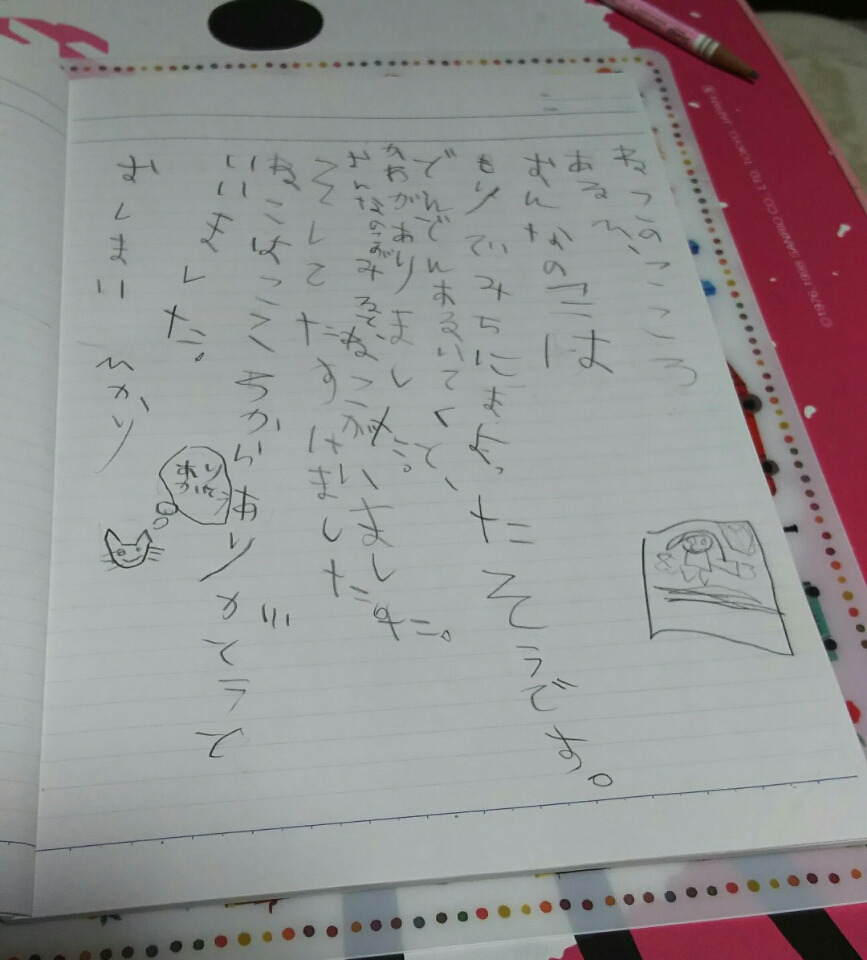 ねこのこころ
あるひ、
おんなのこは
もりでみちにまよったそうです。
でんでんあるいてくと、
かわがありました。
おんなのこがみると、ねこがいました。
そして たすけました。
ねこはこころからありがとうと
いいました。
おしまい ひかり
ありがとう
©1976, 1998 SANRIO CO., LTD. TOKYO, JAPAN